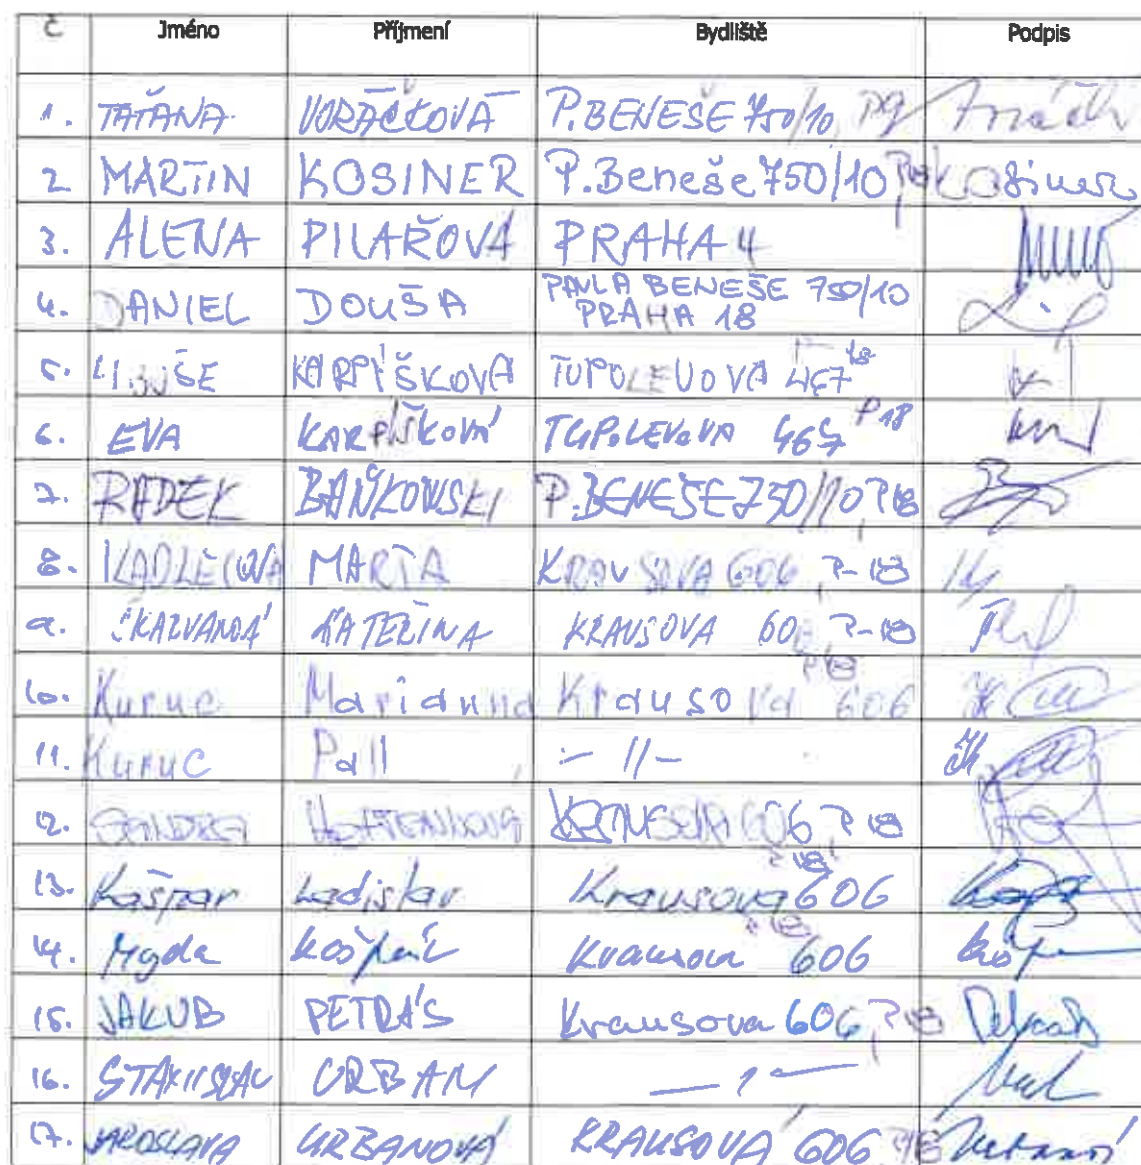 Č Jméno Příjmení Bydliště Podpis
1. TAŤÁNA VORÁČKOVÁ P. BENEŠE 750/10, P9
2 MARTIN KOSINER P. Beneše 750/10, Kosiner
3. ALENA PILAŘOVÁ PRAHA 4
4. DANIEL DOUŠA PAVLA BENEŠE 750/10
PRAHA 18
5. LIBUŠE KARPÍŠKOVÁ TUPOLEVOVA 467
6. EVA KARPÍŠKOVÁ TUPOLEVOVA P18
7. RADEK BAŃKOWSKI P. BENEŠE 750/10, P18
8. KADLECOVÁ MARTA KRAUSOVA 606, P-18
9. KATEŘINA KRAUSOVA P-18
P18
10. Kuruc Marianna Krausova 606
11. Kuruc Pall -"-
12. SANDRA 606 P 18
P18
13. Kašpar Ladislav Krausova 606
P18
14. Magda Krausova 606
15. JAKUB PETRÁS Krausova 606, P18
16. STANISLAV URBAN —"—
17. JAROSLAVA URBANOVÁ KRAUSOVA 606 P18